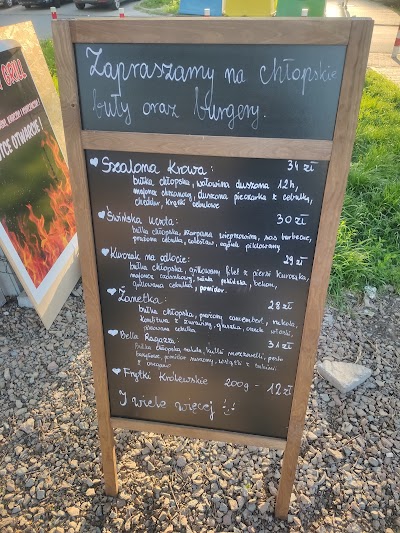 GRILL
Zapraszamy na chłopskie
buły oraz burgery.
Szalona Krowa: 34 zł
bułka chłopska, wołowina duszona 12h,
majonez chrzanowy, duszona pieczarka z cebulką,
cheddar, krążki cebulowe
Świńska Uczta: 30 zł
bułka chłopska, szarpana wieprzowina, sos barbecue,
prażona cebulka, colesław, ogórek piklowany
Kurczak na odlocie: 29 zł
bułka chłopska, grillowany filet z piersi kurczaka,
majonez czosnkowy, sałata pekińska, bekon,
grillowana cebulka, pomidor.
Żanetka: 28 zł
bułka chłopska, panierowany camembert, rukola,
konfitura z żurawiny, gruszka, orzech włoski,
cebulka
Bella Ragazza: 31 zł
Bułka chłopska, rukola, kulki mozzarelli, pesto
bazyliowe, pomidor suszony, z
i oregano
Frytki Królewskie 200g - 12 zł
I wiele więcej